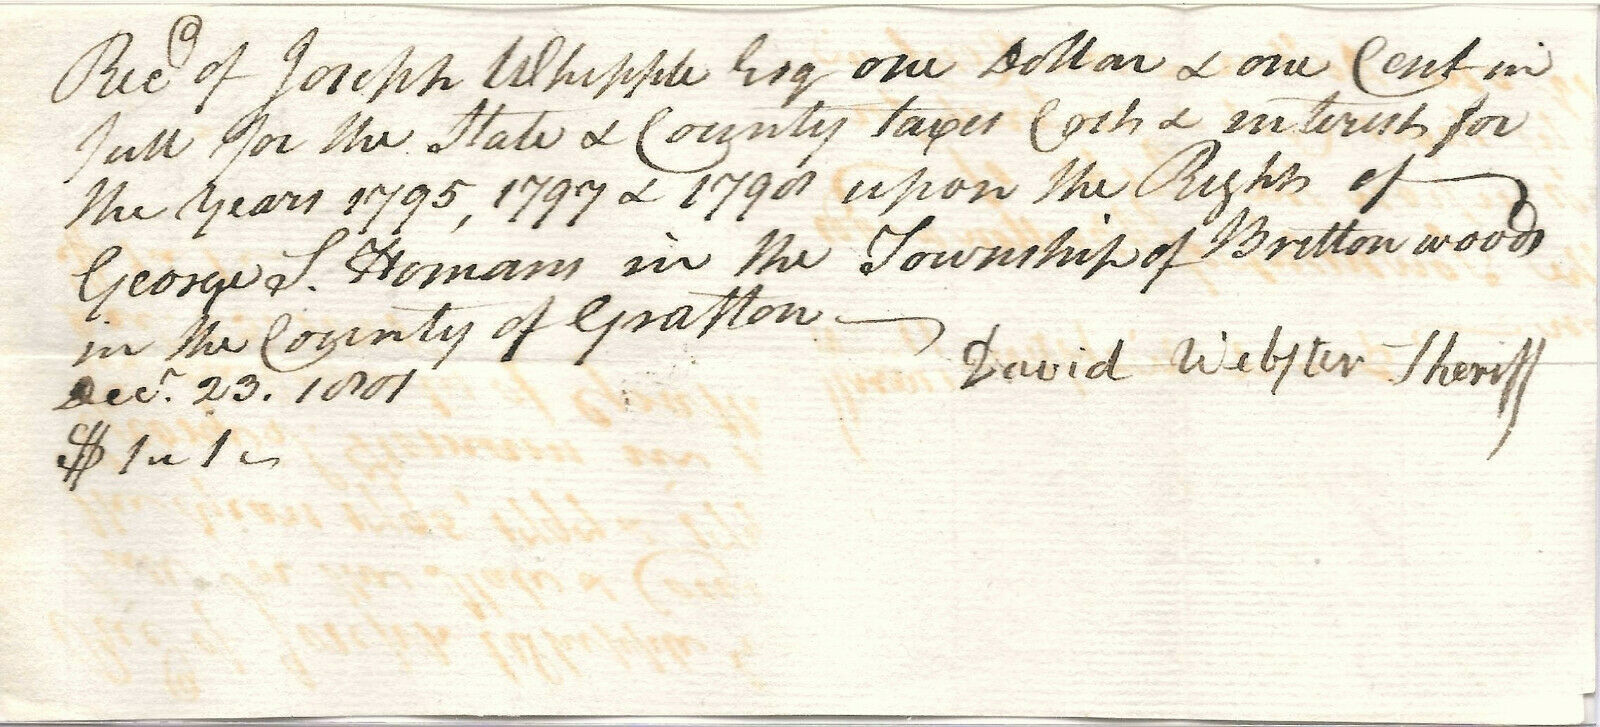 Recd of Joseph Whipple Esq one Dollar & one Cent in
full for the State & County taxes Cost & interest for
the Years 1795, 1797 & 1798 upon the Rights of
George S. Homans in the Township of Bretton woods
in the County of Gratton
David Webster Sheriff
Decr. 23. 1801
$ 1 " 1